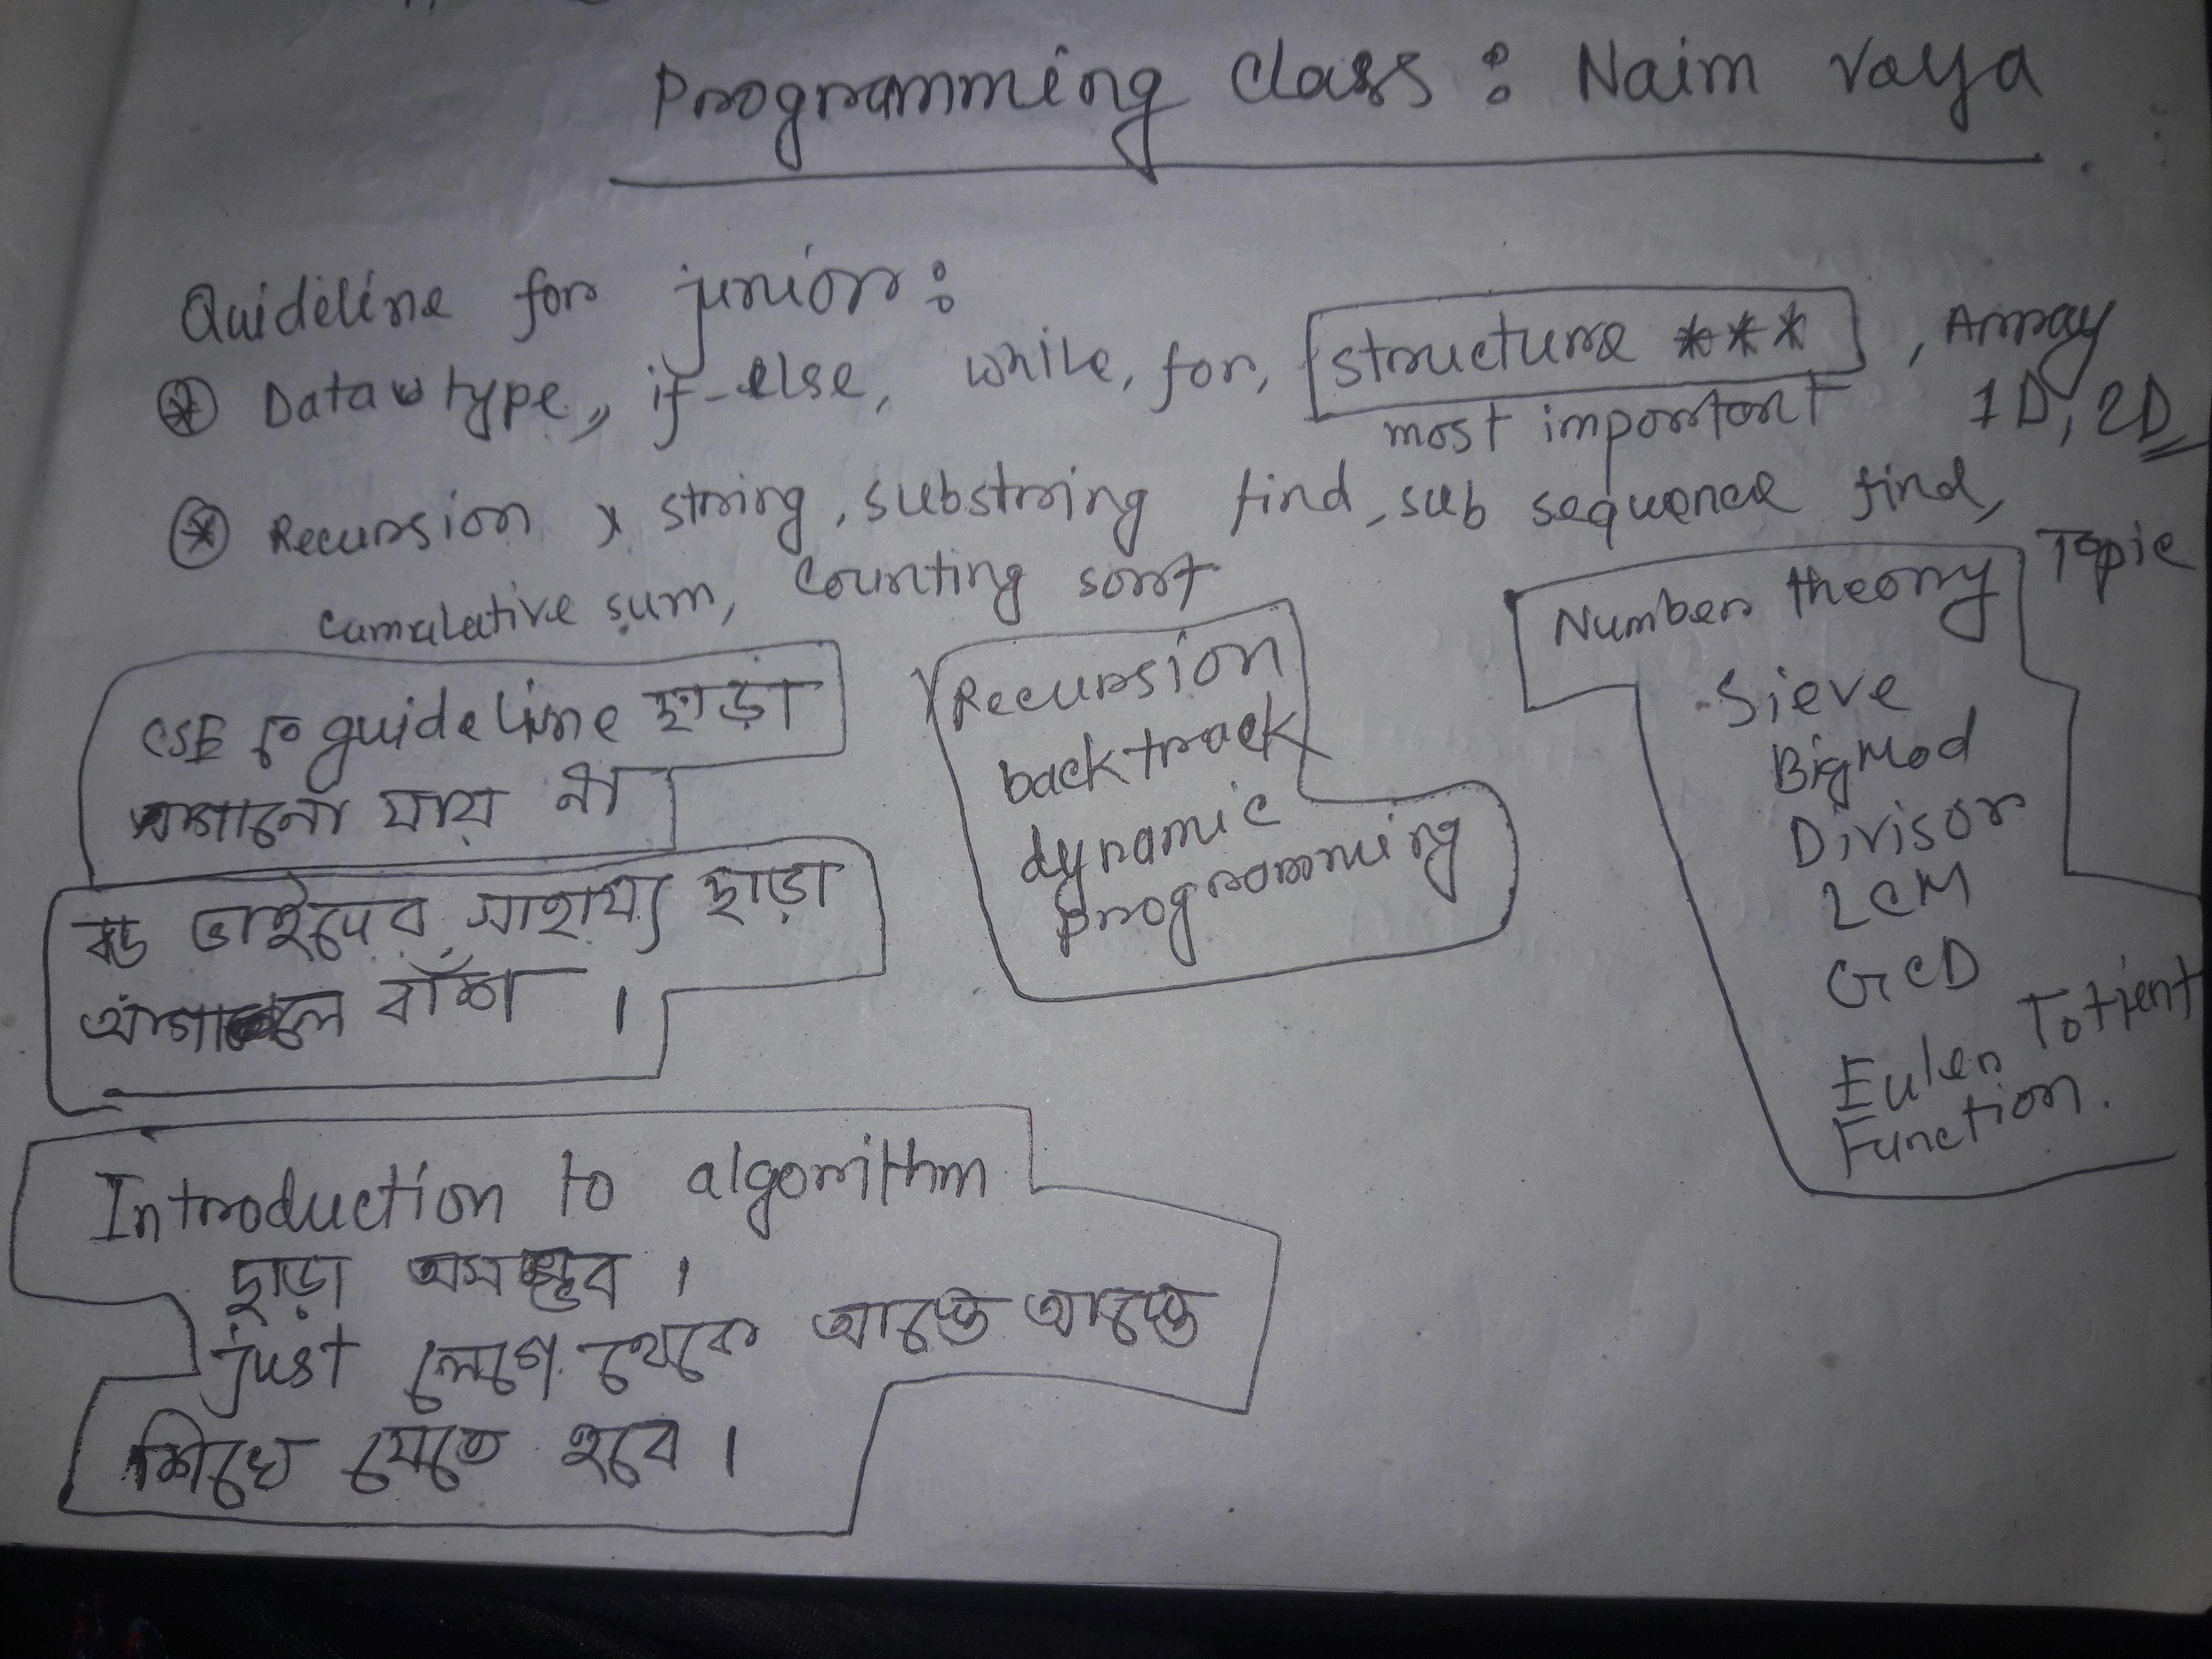 Programming class : Naim Vaya
Guideline for junior :
Data type, if-else, while, for, structure *** , Array
most important 1D, 2D
Recursion, string, substring find, sub sequence find,
cumulative sum, counting sort
CSE তে guideline ছাড়া
আগানো যায় না
বড় ভাইদের সাহায্য ছাড়া
আগালে বাঁশ ।
Recursion
backtrack
dynamic
programming
Number theory Topic
Sieve
BigMod
Divisor
LCM
GCD
Euler Totient
Function.
Introduction to algorithm
ছাড়া অসম্ভব ।
just লেগে থেকে আস্তে আস্তে
শিখে যেতে হবে ।